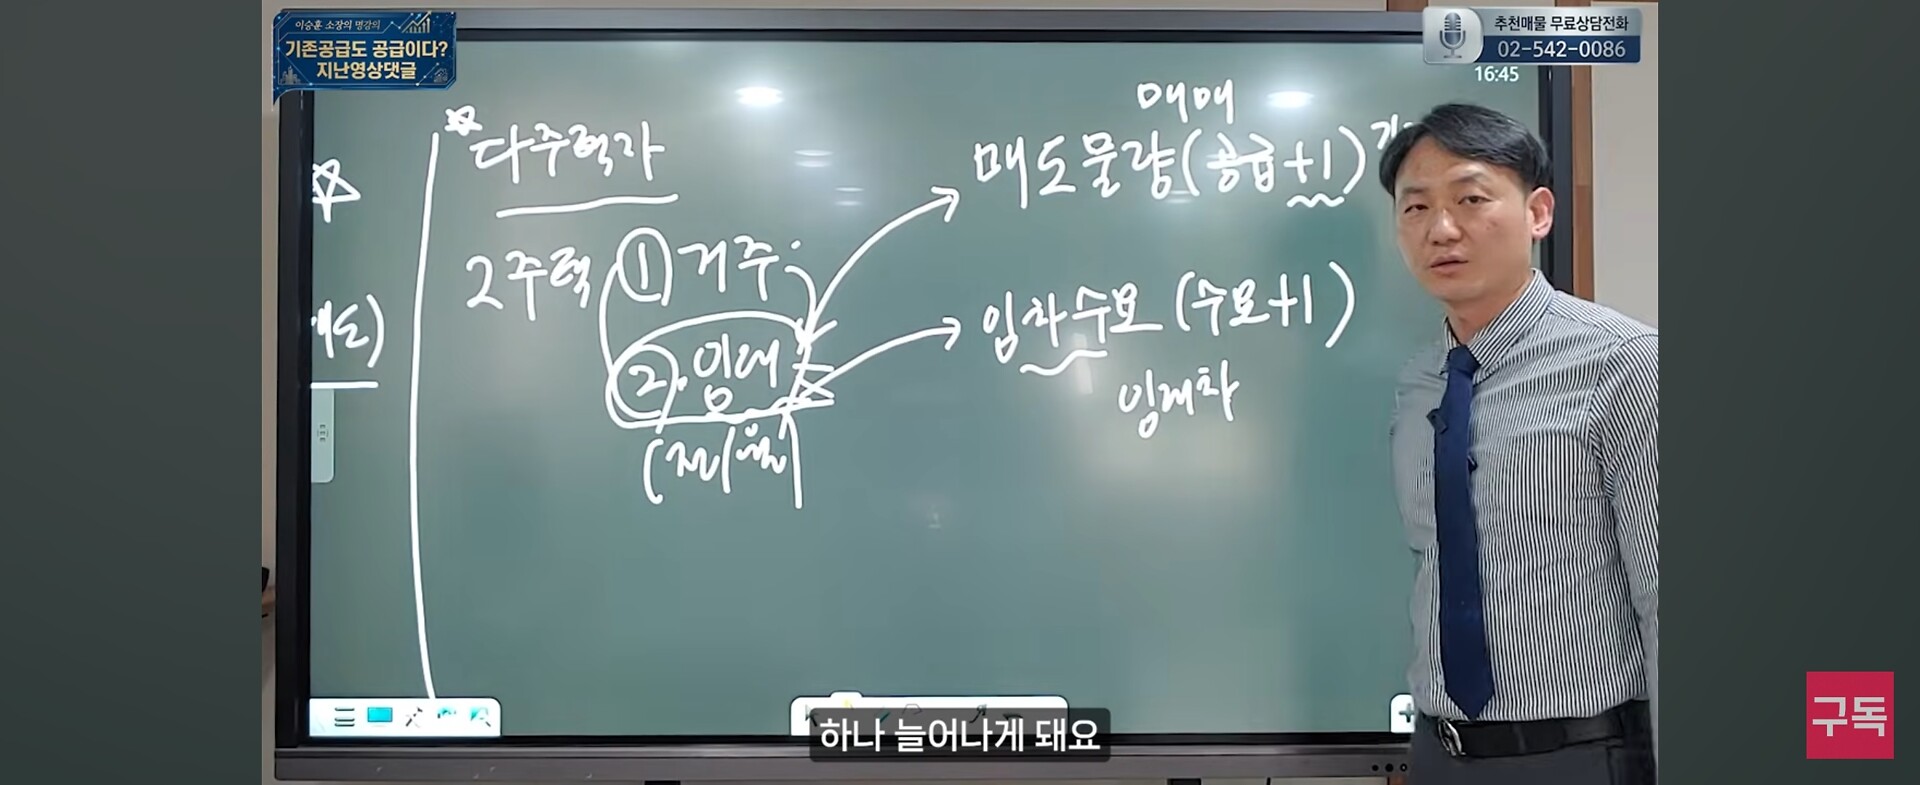 이승훈 소장의 명강의
기존공급도 공급이다?
지난영상댓글
추천매물 무료상담전화
02-542-0086
16:45
다주택자
2주택 ① 거주
②. 임대
(전/월)
매매
매도물량(공급+1)
임차수요 (수요+1)
임대차
하나 늘어나게 돼요
구독